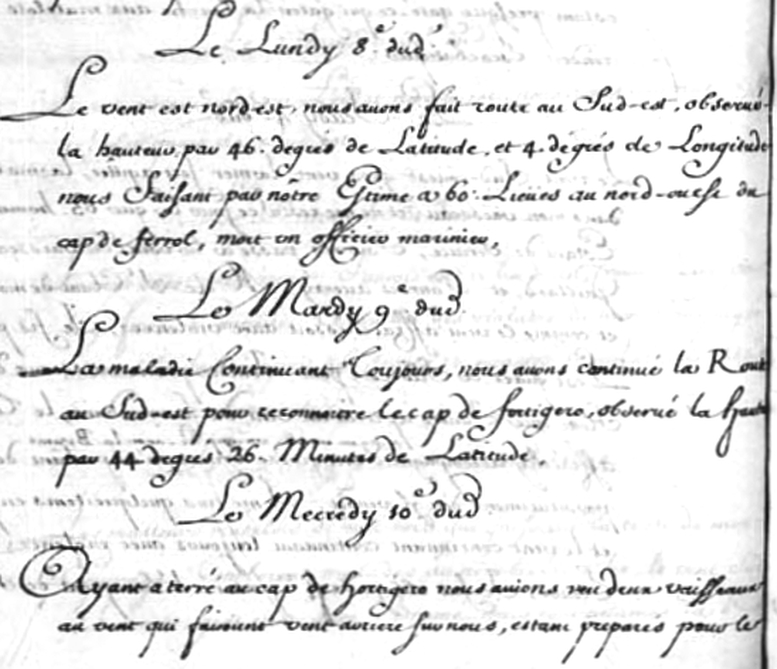 Le Lundy 8e dud.
Le vent est nord est, nous auons fait route au Sud-est, obserué
la hauteur par 46. degrés de Latitude, et 4. degrés de Longitude
nous faisant par nôtre Estime a 60. Lieües au nord-ouest du
cap de ferrol, mort un officier marinier,
Le Mardy 9e dud
La maladie Continuant Toujours, nous auons continué la Rout
au Sud-est pour reconnoitre le cap de fortigero, obserué la haute
par 44 degrés 26. Minutes de Latitude.
Le Mecredy 10e dud
Ayant aterré au cap de hortigero nous auions veu deux vaisseaux
au vent qui faisoient vent arriere sur nous, estant preparés pour le